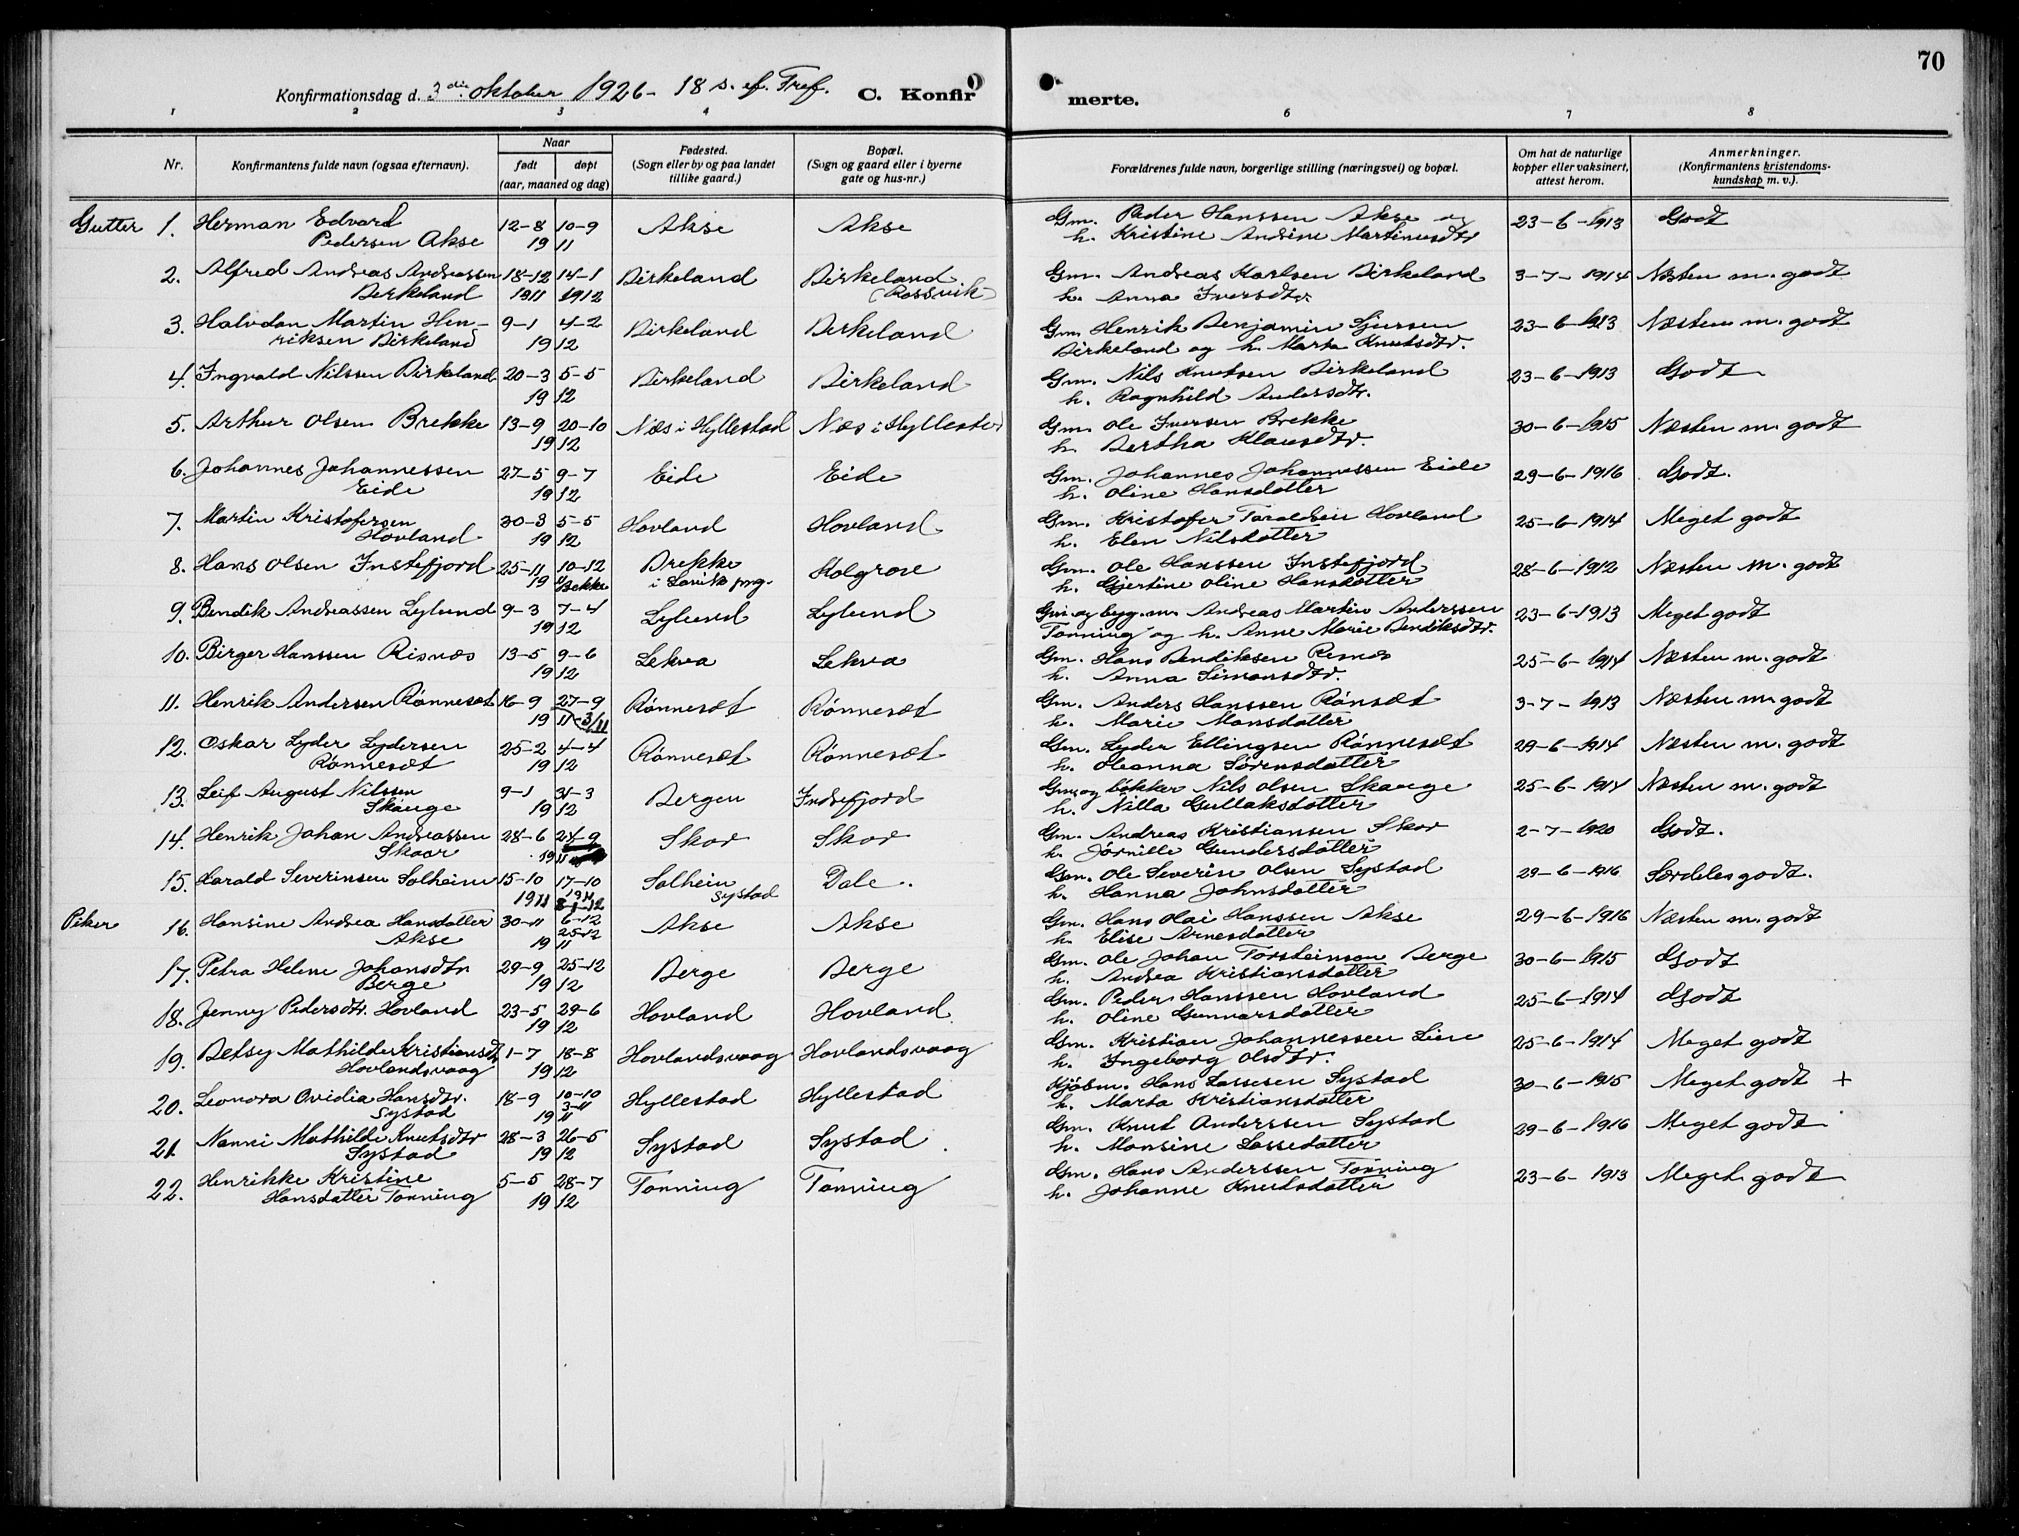 70
Konfirmationsdag d. 3die oktober 1926 - 18 s. ef. Tref. C. Konfir merte.
1 2 3 4 6 7 8
Nr. Konfirmantens fulde navn (ogsaa efternavn). Naar født døpt (aar, maaned og dag) Fødested. (Sogn eller by og paa landet tillike gaard.) Bopæl. (Sogn og gaard eller i byerne gate og hus-nr.) Forældrenes fulde navn, borgerlige stilling (næringsvei) og bopæl. Om hat de naturlige kopper eller vaksinert, attest herom. Anmerkninger. (Konfirmantens kristendoms-kundskap m. v.).
Gutter 1. Herman Edvard 12-8 10-9 Akse Akse Gm. Peder Hanssen Akse og 23-6-1913 Godt
Pedersen Akse 19 11 h. Kristine Andrine Martinusdtr
2. Alfred Andreas Andreassen 18-12 14-1 Birkeland Birkeland Gm. Andreas Karlsen Birkeland 3-7-1914 Næsten m. godt
Birkeland 1911 1912 (Rossvik) h. Anna Iversdtr.
3. Halvdan Martin Hen- 9-1 4-2 Birkeland Birkeland Gm. Henrik Benjamin Sjursen 23-6-1913 Næsten m. godt
riksen Birkeland 19 12 Birkeland og h. Marta Knutsdtr.
4. Ingvald Nilssen Birkeland 20-3 5-5 Birkeland Birkeland Gm. Nils Knutsen Birkeland 23-6-1913 Godt
19 12 h. Ragnhild Andersdtr.
5. Arthur Olsen Brekke 13-9 20-10 Næs i Hyllestad Næs i Hyllestad Gm. Ole Iversen Brekke 30-6-1915 Næsten m. godt
19 12 h. Bertha Klausdtr.
6. Johannes Johannessen 27-5 9-7 Eide Eide Gm. Johannes Johannessen Eide 29-6-1916 Godt.
Eide 19 12 h. Oline Hansdatter
7. Martin Kristofersen 30-3 5-5 Hovland Hovland Gm. Kristofer Taraldsen Hovland 25-6-1914 Meget godt
Hovland 19 12 h. Elen Nilsdatter
8. Hans Olsen Instefjord 25-11 10-12 Brekke Kolgrov Gm. Ole Hanssen Instefjord 28-6-1912 Næsten m. godt
19 11 Brekke i Lavik prg. h. Gjertine Oline Hansdatter
9. Bendik Andreassen Lylund 9-3 7-4 Lylund Lylund Gm. og bygg.m. Andreas Martin Anderssen 23-6-1913 Meget godt
19 12 Tonning og h. Anne Marie Bendiksdtr.
10. Birger Hanssen Risnæs 13-5 9-6 Lekva Lekva Gm. Hans Bendiksen Risnæs 25-6-1914 Næsten m. godt
19 12 h. Anna Simonsdtr.
11. Henrik Andersen Rønnesæt 16-9 27-9 Rønnesæt Rønnesæt Gm. Anders Hanssen Rønsæt 3-7-1913 Næsten m. godt
19 11-3/11 h. Marie Monsdatter
12. Oskar Lyder Lydersen 25-2 4-4 Rønnesæt Rønnesæt Gm. Lyder Ellingsen Rønnesæt 29-6-1914 Næsten m. godt
Rønnesæt 19 12 h. Oleanna Sørensdatter
13. Leif August Nilssen 9-1 31-3 Bergen Indrefjord Gm. og bøkker Nils Olsen Skauge 25-6-1914 Næsten m. godt
Skauge 19 12 h. Nilla Gullaksdatter
14. Henrik Johan Andreassen 28-6 24-9 Skor Skor Gm. Andreas Kristiansen Skor 2-7-1920 Godt.
Skaar 19 11 h. Jørnille Gundersdatter
15. Harald Severinsen Solheim 15-10 17-10 Solheim Dale. Gm. Ole Severin Olsen Systad 29-6-1916 Særdeles godt.
1911 1911 8-1-12 Systad h. Hanna Johnsdatter
Piker 16. Hansine Andrea Hansdatter 30-11 6-12 Akse Akse Gm. Hans Olai Hanssen Akse 29-6-1916 Næsten m. godt
Akse 25-12 19 11 h. Elise Arnesdatter
17. Petra Helene Johansdtr 29-9 25-12 Berge Berge Gm. Ole Johan Torsteinson Berge 30-6-1915 Godt
Berge 19 12 h. Andrea Kristiansdatter
18. Jenny Pedersdtr. Hovland 23-5 29-6 Hovland Hovland Gm. Peder Hanssen Hovland 25-6-1914 Godt
19 12 h. Oline Gunnarsdatter
19. Betsy Mathilde Kristiansdtr 1-7 18-8 Hovlandsvaag Hovlandsvaag Gm. Kristian Johannessen Lien 25-6-1914 Meget godt
Hovlandsvaag 19 12 h. Ingeborg Olsdtr.
20. Leonora Ovidia Hansdtr. 18-9 10-10 Hyllestad Hyllestad Kjøbm. Hans Lassesen Systad 30-6-1915 Meget godt +
Systad 3-11 19 11 h. Marta Kristiansdatter
21. Nanni Mathilde Knutsdtr 28-3 26-5 Systad Systad Gm. Knut Anderssen Systad 29-6-1916 Meget godt
Systad 19 12 h. Monsine Lassedatter
22. Henrikke Kristine 5-5 28-7 Tonning Tonning Gm. Hans Anderssen Tonning 23-6-1913 Meget godt
Hansdatter Tonning 19 12 h. Johanne Knutsdatter